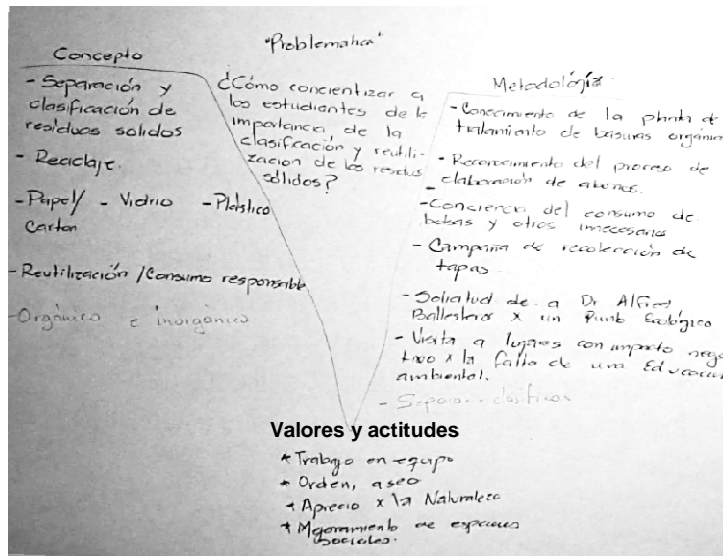 "Problematica"
Concepto
- Separación y
clasificación de
residuos solidos
- Reciclaje.
- Papel/ - Vidrio - Plástico
Carton
- Reutilización / Consumo responsable
- Orgánico e inorgánico
¿Cómo concientizar a
los estudiantes de la
importancia de la
clasificación y reutili-
zación de los residuos
sólidos?
Metodología
- Conocimiento de la planta de
tratamiento de basuras orgánic
- Reconocimiento del proceso de
elaboración de abonos.
- Conciencia del consumo de
bolsas y otros innecesarios
- Campaña de recolección de
tapas
- Solicitud de a Dr Alfred
Ballesteros x un Punto Ecológico
- Visita a lugares con impacto nega
tivo x la falta de una Educación
ambiental.
- Separar
Valores y actitudes
* Trabajo en equipo
* Orden, aseo
* Aprecio x la Naturaleza
* Mejoramiento de espacios
sociales.